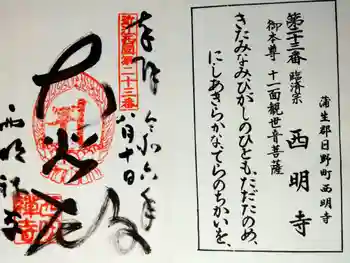 第二十三番 臨済宗 西明寺
蒲生郡日野町西明寺
御本尊 十一面観世音菩薩
きたみなみひがしのひともただたのめ、
にしあきらかなてらのちかいを、
奉拝 令和六年
八月十日
第二十三番
大悲殿
西明禅寺